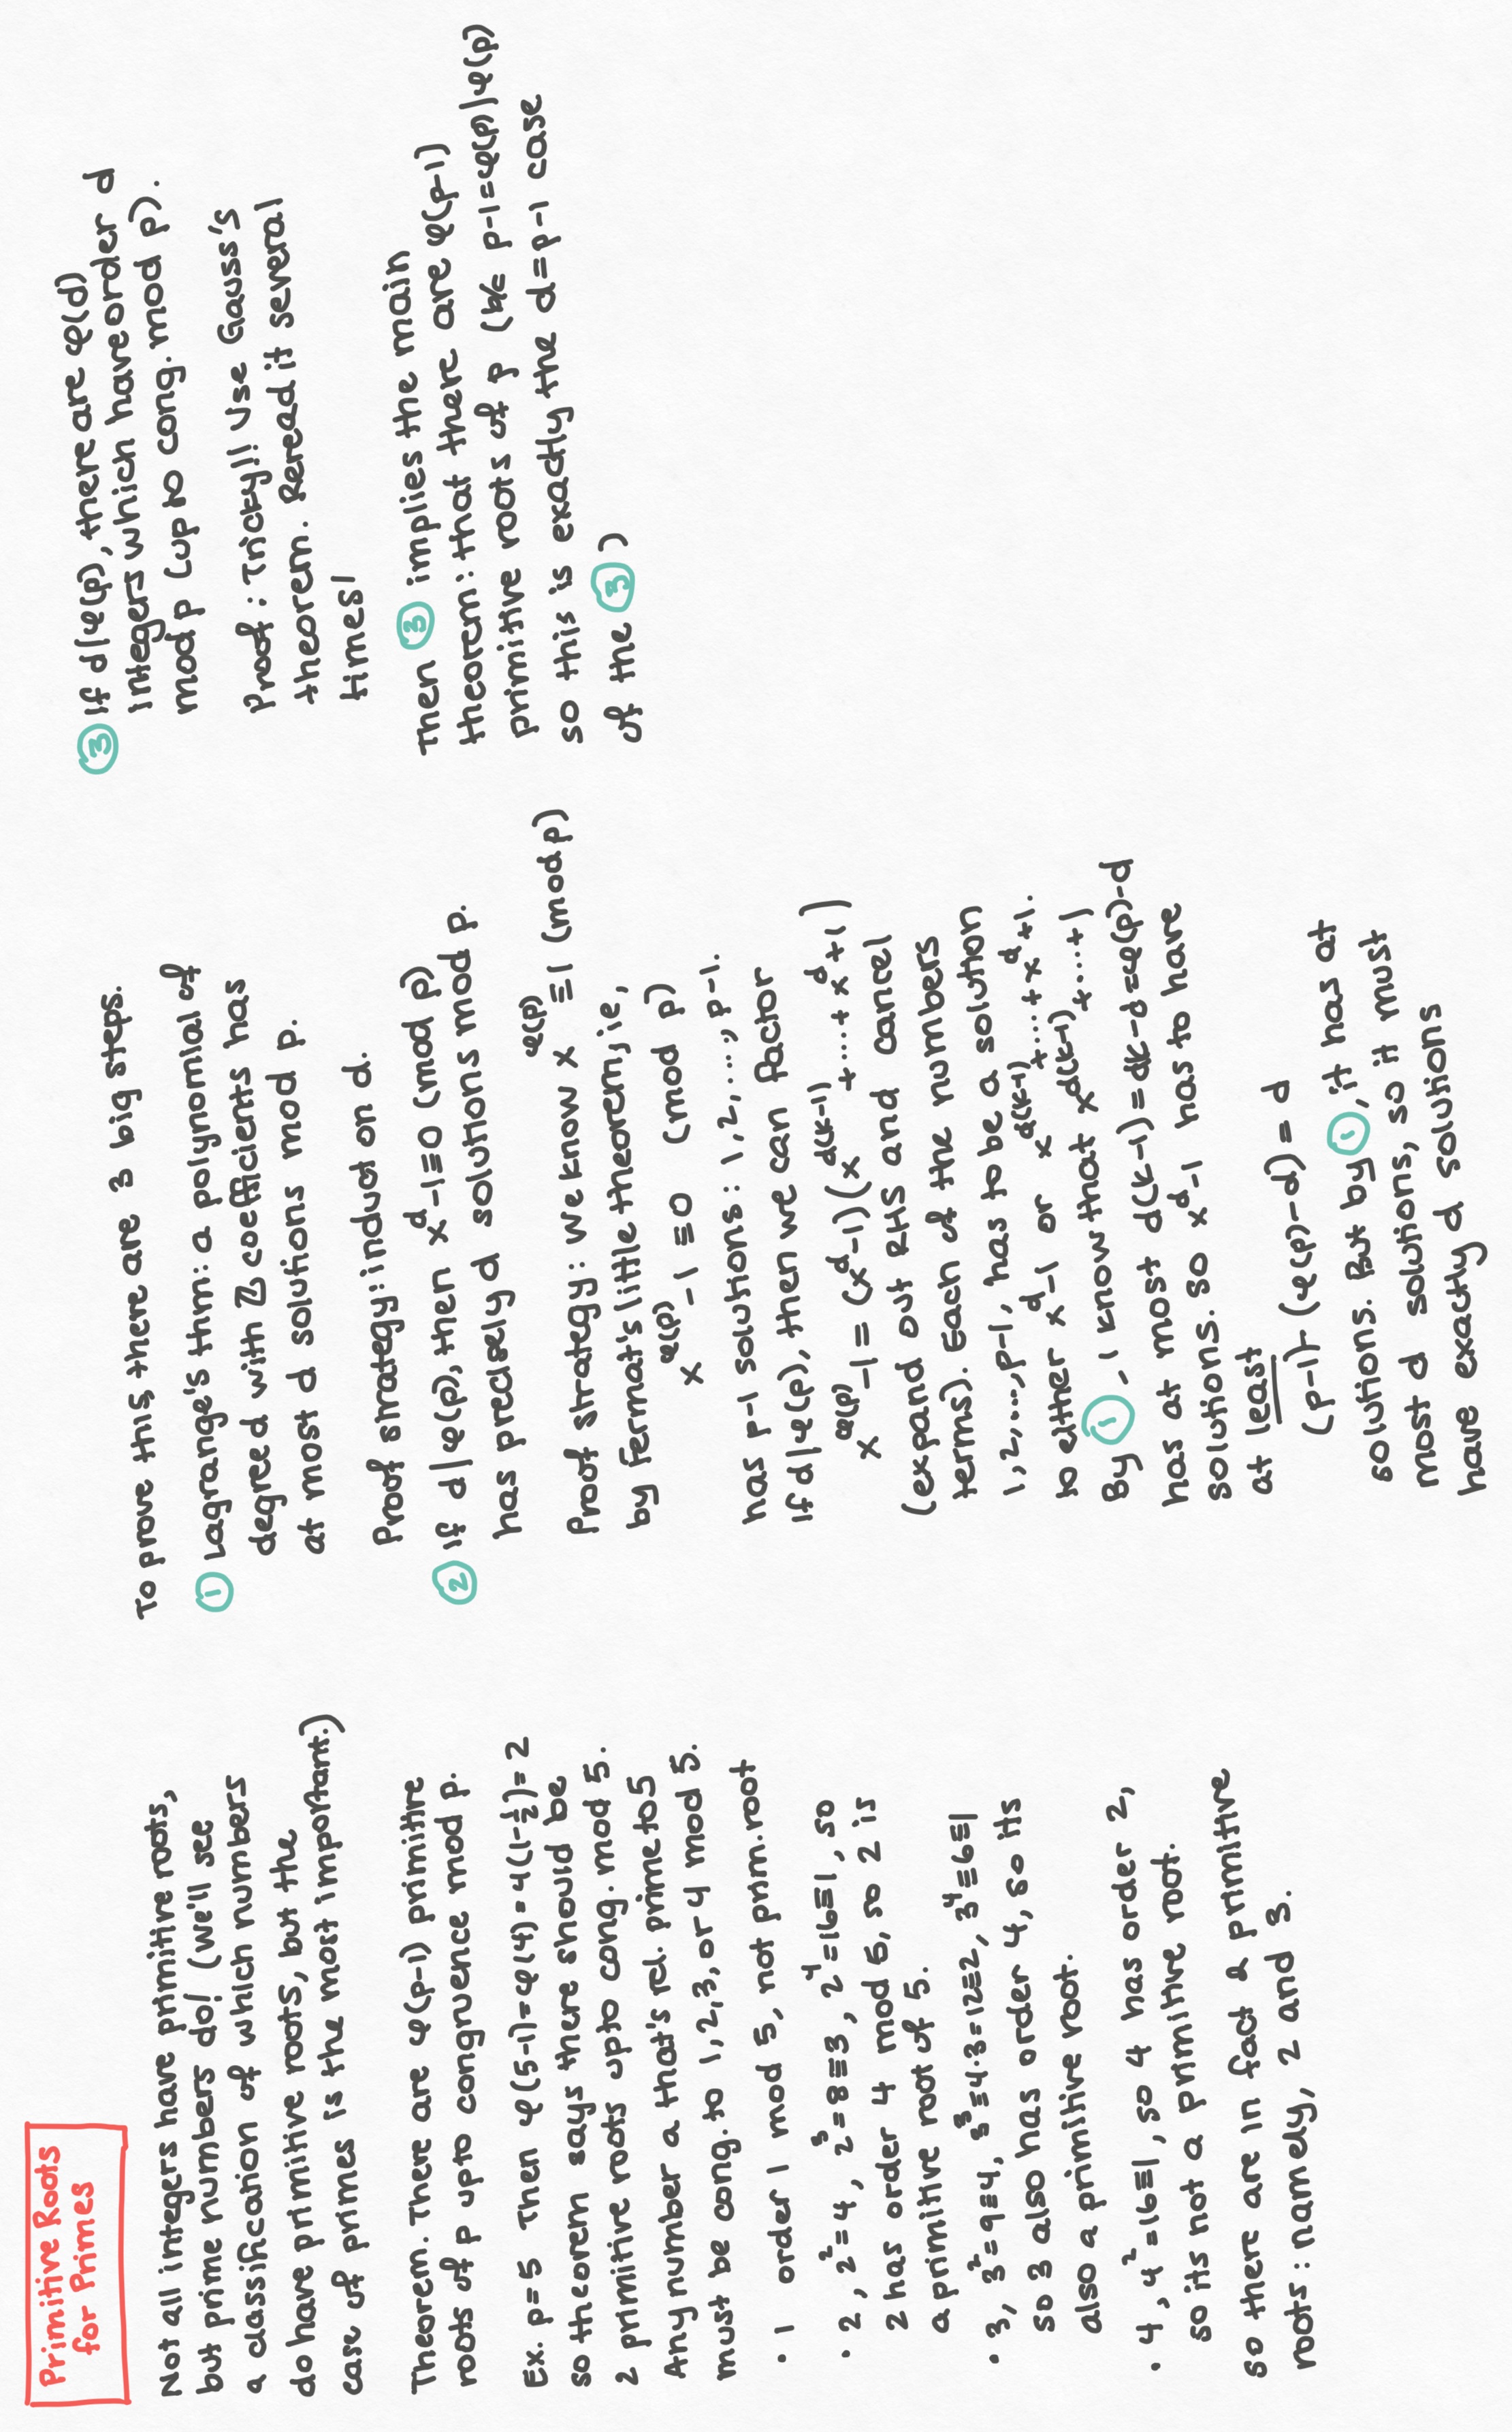 Primitive Roots
for Primes
Not all integers have primitive roots,
but prime numbers do! (we'll see
a classification of which numbers
do have primitive roots, but the
case of primes is the most important.)
Theorem. There are φ(p-1) primitive
roots of p upto congruence mod p.
Ex. p=5 Then φ(5-1)=φ(4)=4(1-½)=2
so theorem says there should be
2 primitive roots upto cong. mod 5.
Any number a that's rel. prime to 5
must be cong. to 1,2,3, or 4 mod 5.
• 1 order 1 mod 5, not prim. root
• 2, 2²=4, 2³=8≡3, 2⁴=16≡1, so
2 has order 4 mod 5, so 2 is
a primitive root of 5.
• 3, 3²=9≡4, 3³≡4·3=12≡2, 3⁴≡6≡1
so 3 also has order 4, so its
also a primitive root.
• 4, 4²=16≡1, so 4 has order 2,
so its not a primitive root.
so there are in fact 2 primitive
roots: namely, 2 and 3.
To prove this, there are 3 big steps.
① Lagrange's thm: a polynomial of
degree d with ℤ coefficients has
at most d solutions mod p.
Proof strategy: induct on d.
② If d|φ(p), then x^d-1≡0 (mod p)
has precisely d solutions mod p.
Proof strategy: We know x^φ(p)≡1 (mod p)
by Fermat's little theorem, ie,
x^φ(p)-1≡0 (mod p)
has p-1 solutions: 1,2,...,p-1.
If d|φ(p), then we can factor
x^φ(p)-1=(x^d-1)(x^d(k-1)+...+x^d+1)
(expand out RHS and cancel
terms). Each of the numbers
1,2,...,p-1, has to be a solution
to either x^d-1 or x^d(k-1)+...+x^d+1.
By ①, I know that x^d(k-1)+...+1
has at most d(k-1)=dk-d=φ(p)-d
solutions. So x^d-1 has to have
at least
(p-1)-(φ(p)-d)=d
solutions. But by ①, it has at
most d solutions, so it must
have exactly d solutions
③ If d|φ(p), there are φ(d)
integers which have order d
mod p (up to cong. mod p).
Proof: Tricky!! Use Gauss's
theorem. Reread it several
times!
Then ③ implies the main
theorem: that there are φ(p-1)
primitive roots of p (b/c p-1=φ(p)|φ(p)
so this is exactly the d=p-1 case
of the ③)